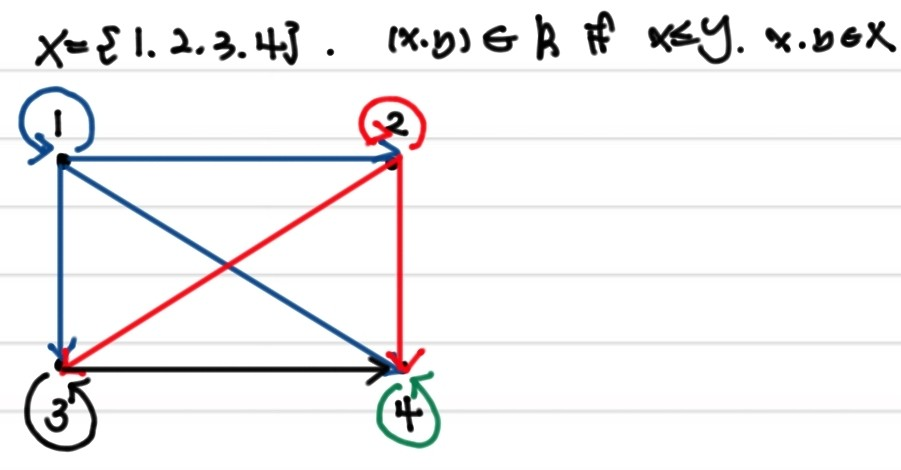 X={1.2.3.4}. (x.y) ∈ R if x≤y. x.y∈X
1 2
3 4